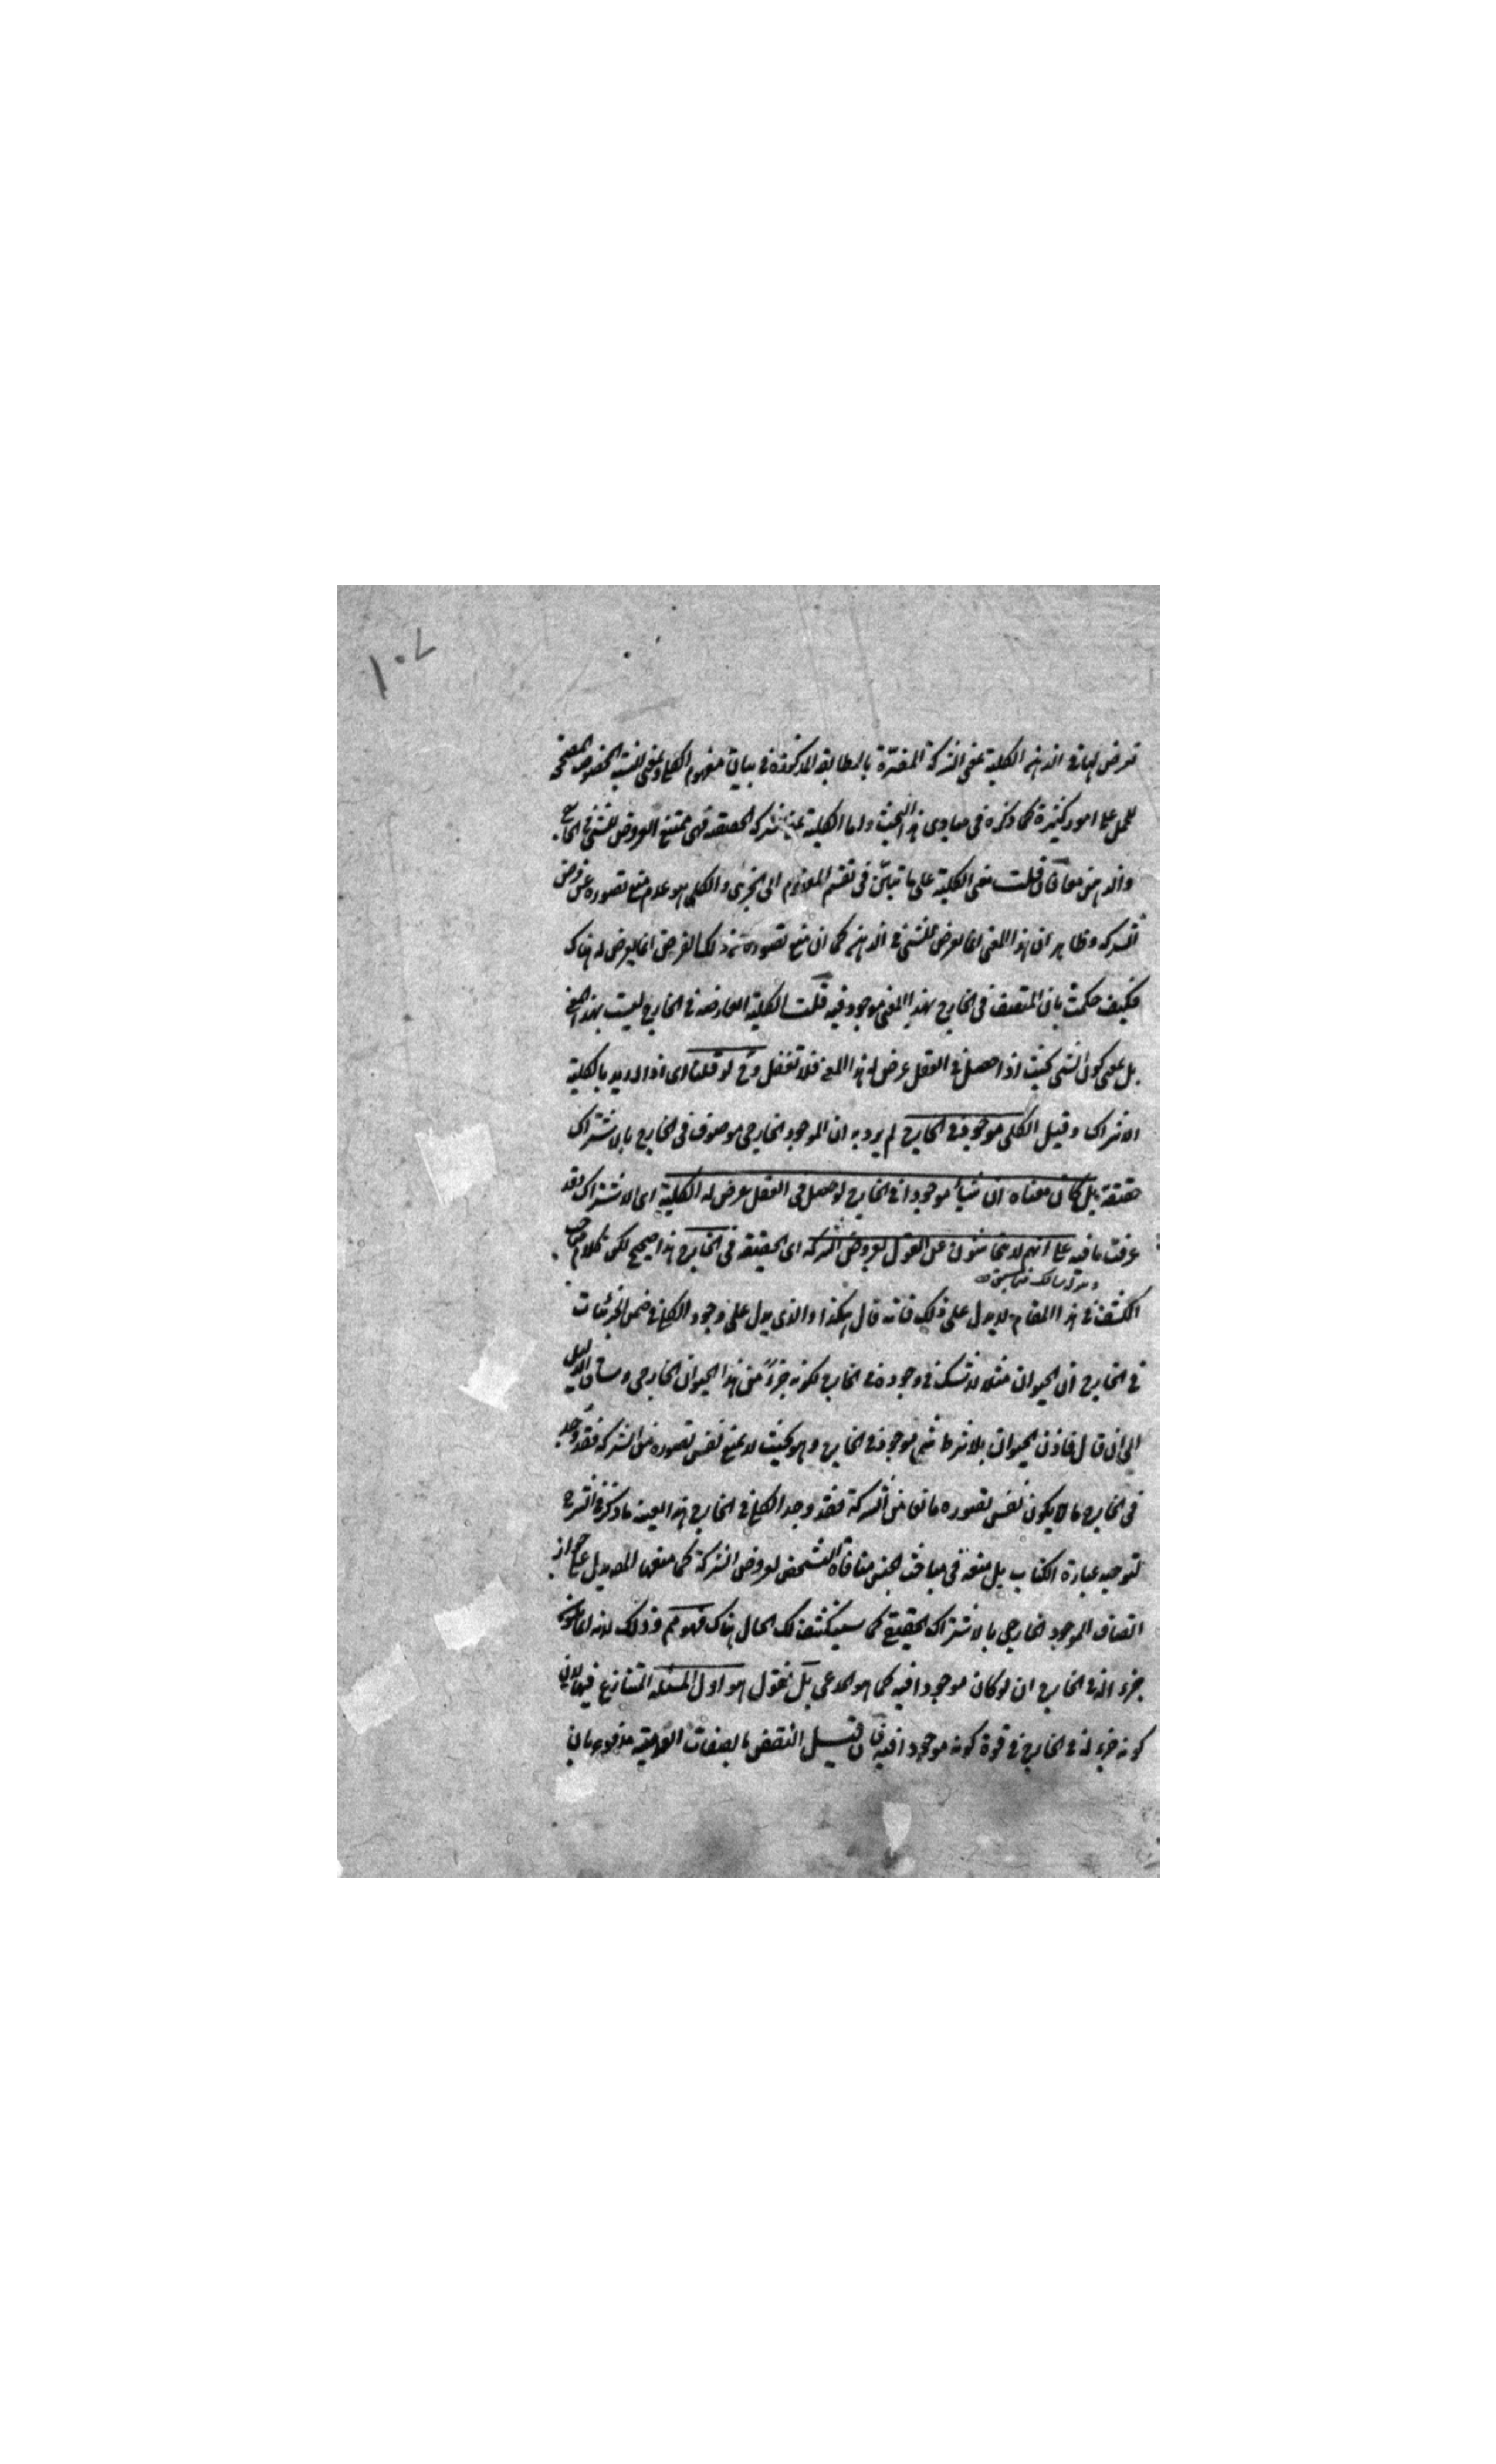 ١٠٧
تعرض لها في الذهن الكلية بمعنى الشركة المفسرة بالمطابقة المذكورة في بيان مفهوم الكلي وبمعنى النسبة المخصوصة المصححة
للحمل على امور كثيرة كما ذكره في مبادى هذا البحث واما الكلية بمعنى شركة الحقيقة فهى ممتنع العروض للشئ في الخارج
والذهن معا فان قلت معنى الكلية على ما تبين في تقسيم المفهوم الى الجزئى والكلى هو عدم منع تصوره عن فرض
الشركه وظاهر ان هذا المعنى انما يعرض للشئ في الذهن كما ان منع تصوره عن ذلك الفرض انما يعرض له هناك
فكيف حكمت بان المتصف في الخارج بهذا المعنى موجود فيه قلت الكلية العارضه في الخارج ليست بهذا المعنى
بل بمعنى كون الشئ بحيث اذا حصل في العقل عرض له هذا المعنى فلا تغفل وح لو قلنا اى اذا اريد بالكلية
الاشتراك وقيل الكلى موجود في الخارج لم يرد به ان الموجود الخارجى موصوف في الخارج بالاشتراك
حقيقة بل كان معناه ان شيأ موجودا في الخارج لو حصل في العقل عرض له الكلية اى الاشتراك وقد
عرفت ما فيه على انهم لا يتحاشون عن القول بعروض الشركه اى الحقيقة في الخارج هذا صحيح لكن كلام صاحب
الكشف في هذا المقام لا يدل على ذلك فانه قال هكذا والذى يدل على وجود الكلي في ضمن الجزئيات
في الخارج ان الحيوان مثلا لا شك في وجوده في الخارج لكونه جزءً من هذا الحيوان الخارجى وساق الدليل
الى ان قال فاذن الحيوان بلا شرط شئ موجود في الخارج وهو بحيث لا يمنع نفس تصوره من الشركه فقد وجد
في الخارج ما لا يكون نفس تصوره مانعا من الشركة فقد وجد الكلي في الخارج هذا بعينه ما ذكر في الشرح
لتوجيه عبارة الكتاب بل منعه في مباحث الجنس منافاة التشخص لعروض الشركة كما منعها المص يدل على جواز
اتصاف الموجود الخارجى بالاشتراك الحقيقي كما سينكشف لك الحال هناك فهو مم وذلك لانه انما يكون
جزء له في الخارج ان لو كان موجودا فيه كما هو المدعى بل نقول هو اول المسئله المتنازع فيها لان
كونه جزء له في الخارج في قوة كونه موجودا فيه فان قيل النقض بالصفات العدمية مدفوع بان